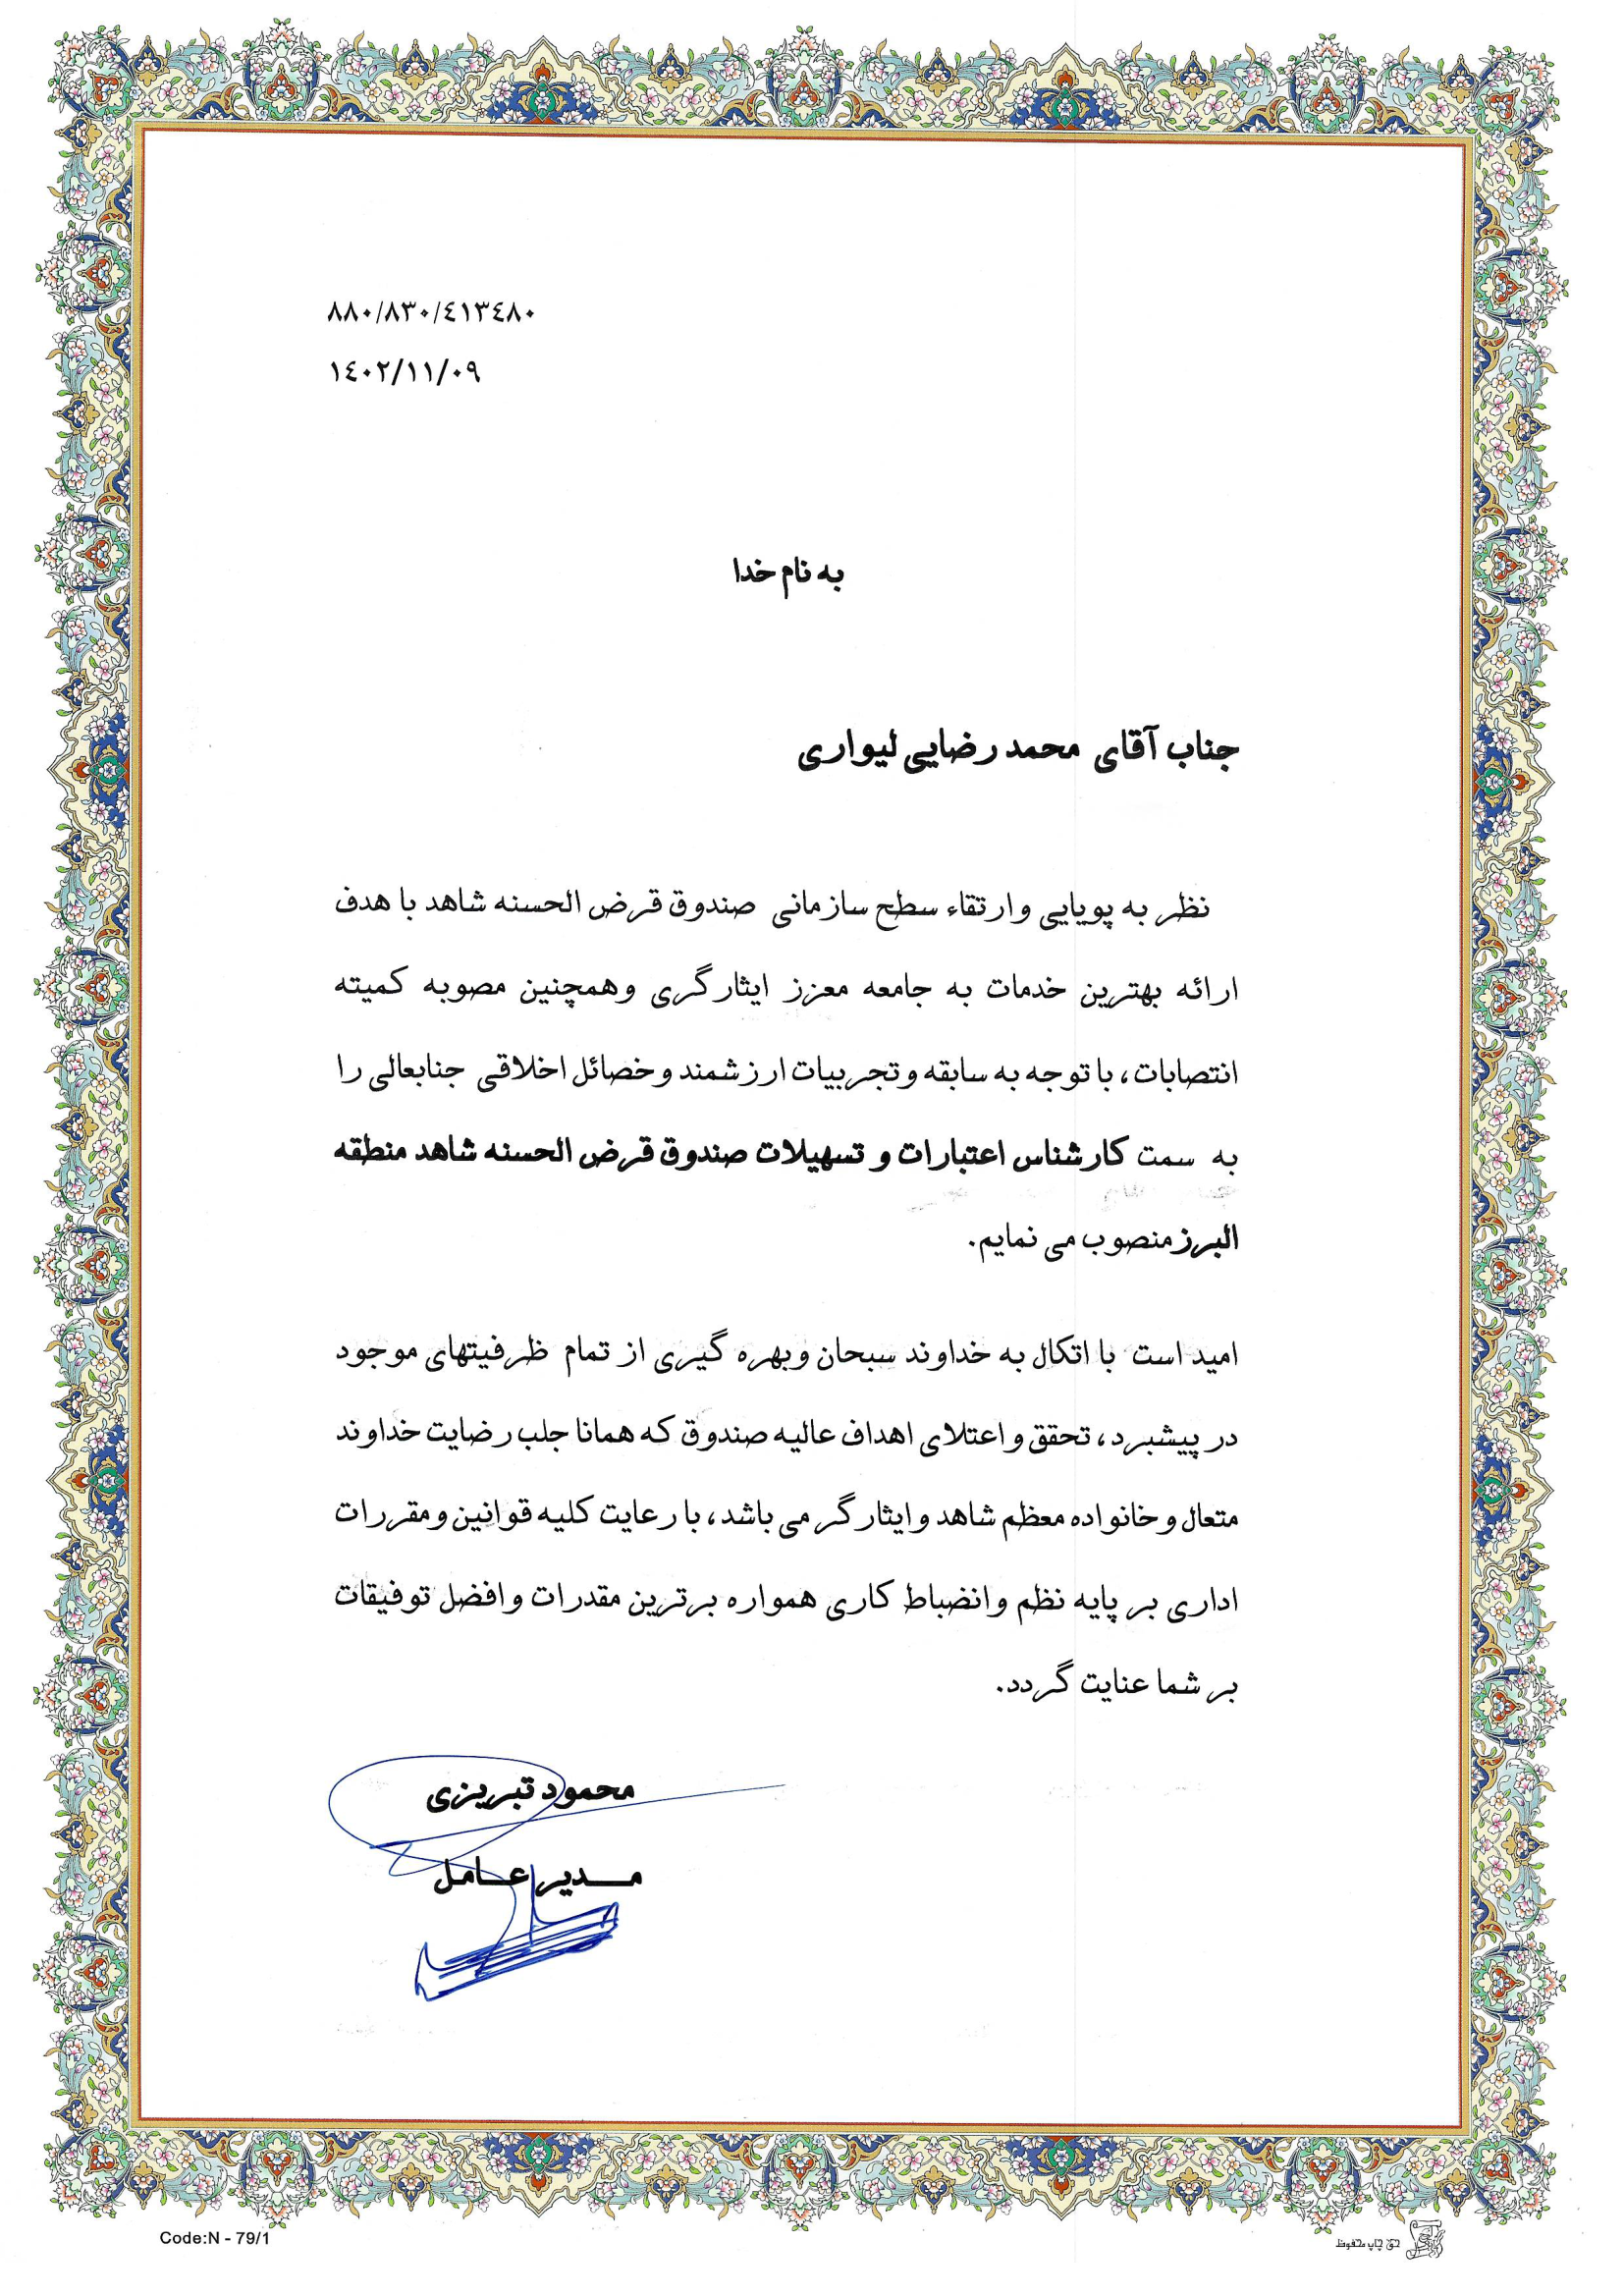 ۸۸۰/۸۳۰/٤۱۳٤۸۰
۱٤۰۲/۱۱/۰۹
به نام خدا
جناب آقای محمد رضایی لیواری
نظر به پویایی وارتقاء سطح سازمانی صندوق قرض الحسنه شاهد با هدف
ارائه بهترین خدمات به جامعه معزز ایثارگری وهمچنین مصوبه کمیته
انتصابات، با توجه به سابقه وتجربیات ارزشمند وخصائل اخلاقی جنابعالی را
به سمت کارشناس اعتبارات و تسهیلات صندوق قرض الحسنه شاهد منطقه
البرز منصوب می نمایم.
امید است با اتکال به خداوند سبحان وبهره گیری از تمام ظرفیتهای موجود
در پیشبرد، تحقق واعتلای اهداف عالیه صندوق که همانا جلب رضایت خداوند
متعال وخانواده معظم شاهد وایثارگر می باشد، با رعایت کلیه قوانین ومقررات
اداری بر پایه نظم وانضباط کاری همواره برترین مقدرات وافضل توفیقات
بر شما عنایت گردد.
محمود تبریزی
مـــدیر عـــامل
Code:N - 79/1
حق چاپ محفوظ